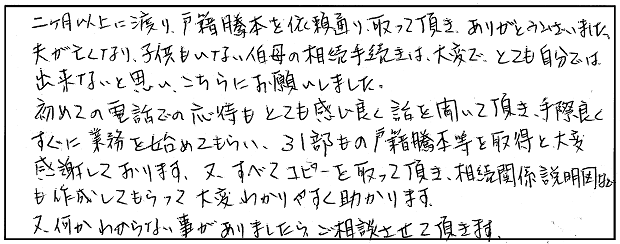 二ヶ月以上に渡り、戸籍謄本を依頼通り、取って頂き、ありがとうございました。
夫が亡くなり、子供もいない伯母の相続手続きは、大変で、とても自分では
出来ないと思い、こちらにお願いしました。
初めての電話での応待もとても感じ良く話を聞いて頂き、手際良く
すぐに業務を始めてもらい、31部もの戸籍謄本等を取得と大変
感謝しております。又、すべてコピーを取って頂き、相続関係説明図など
も作成してもらって大変わかりやすく助かります。
又、何かわからない事がありましたら、ご相談させて頂きます。